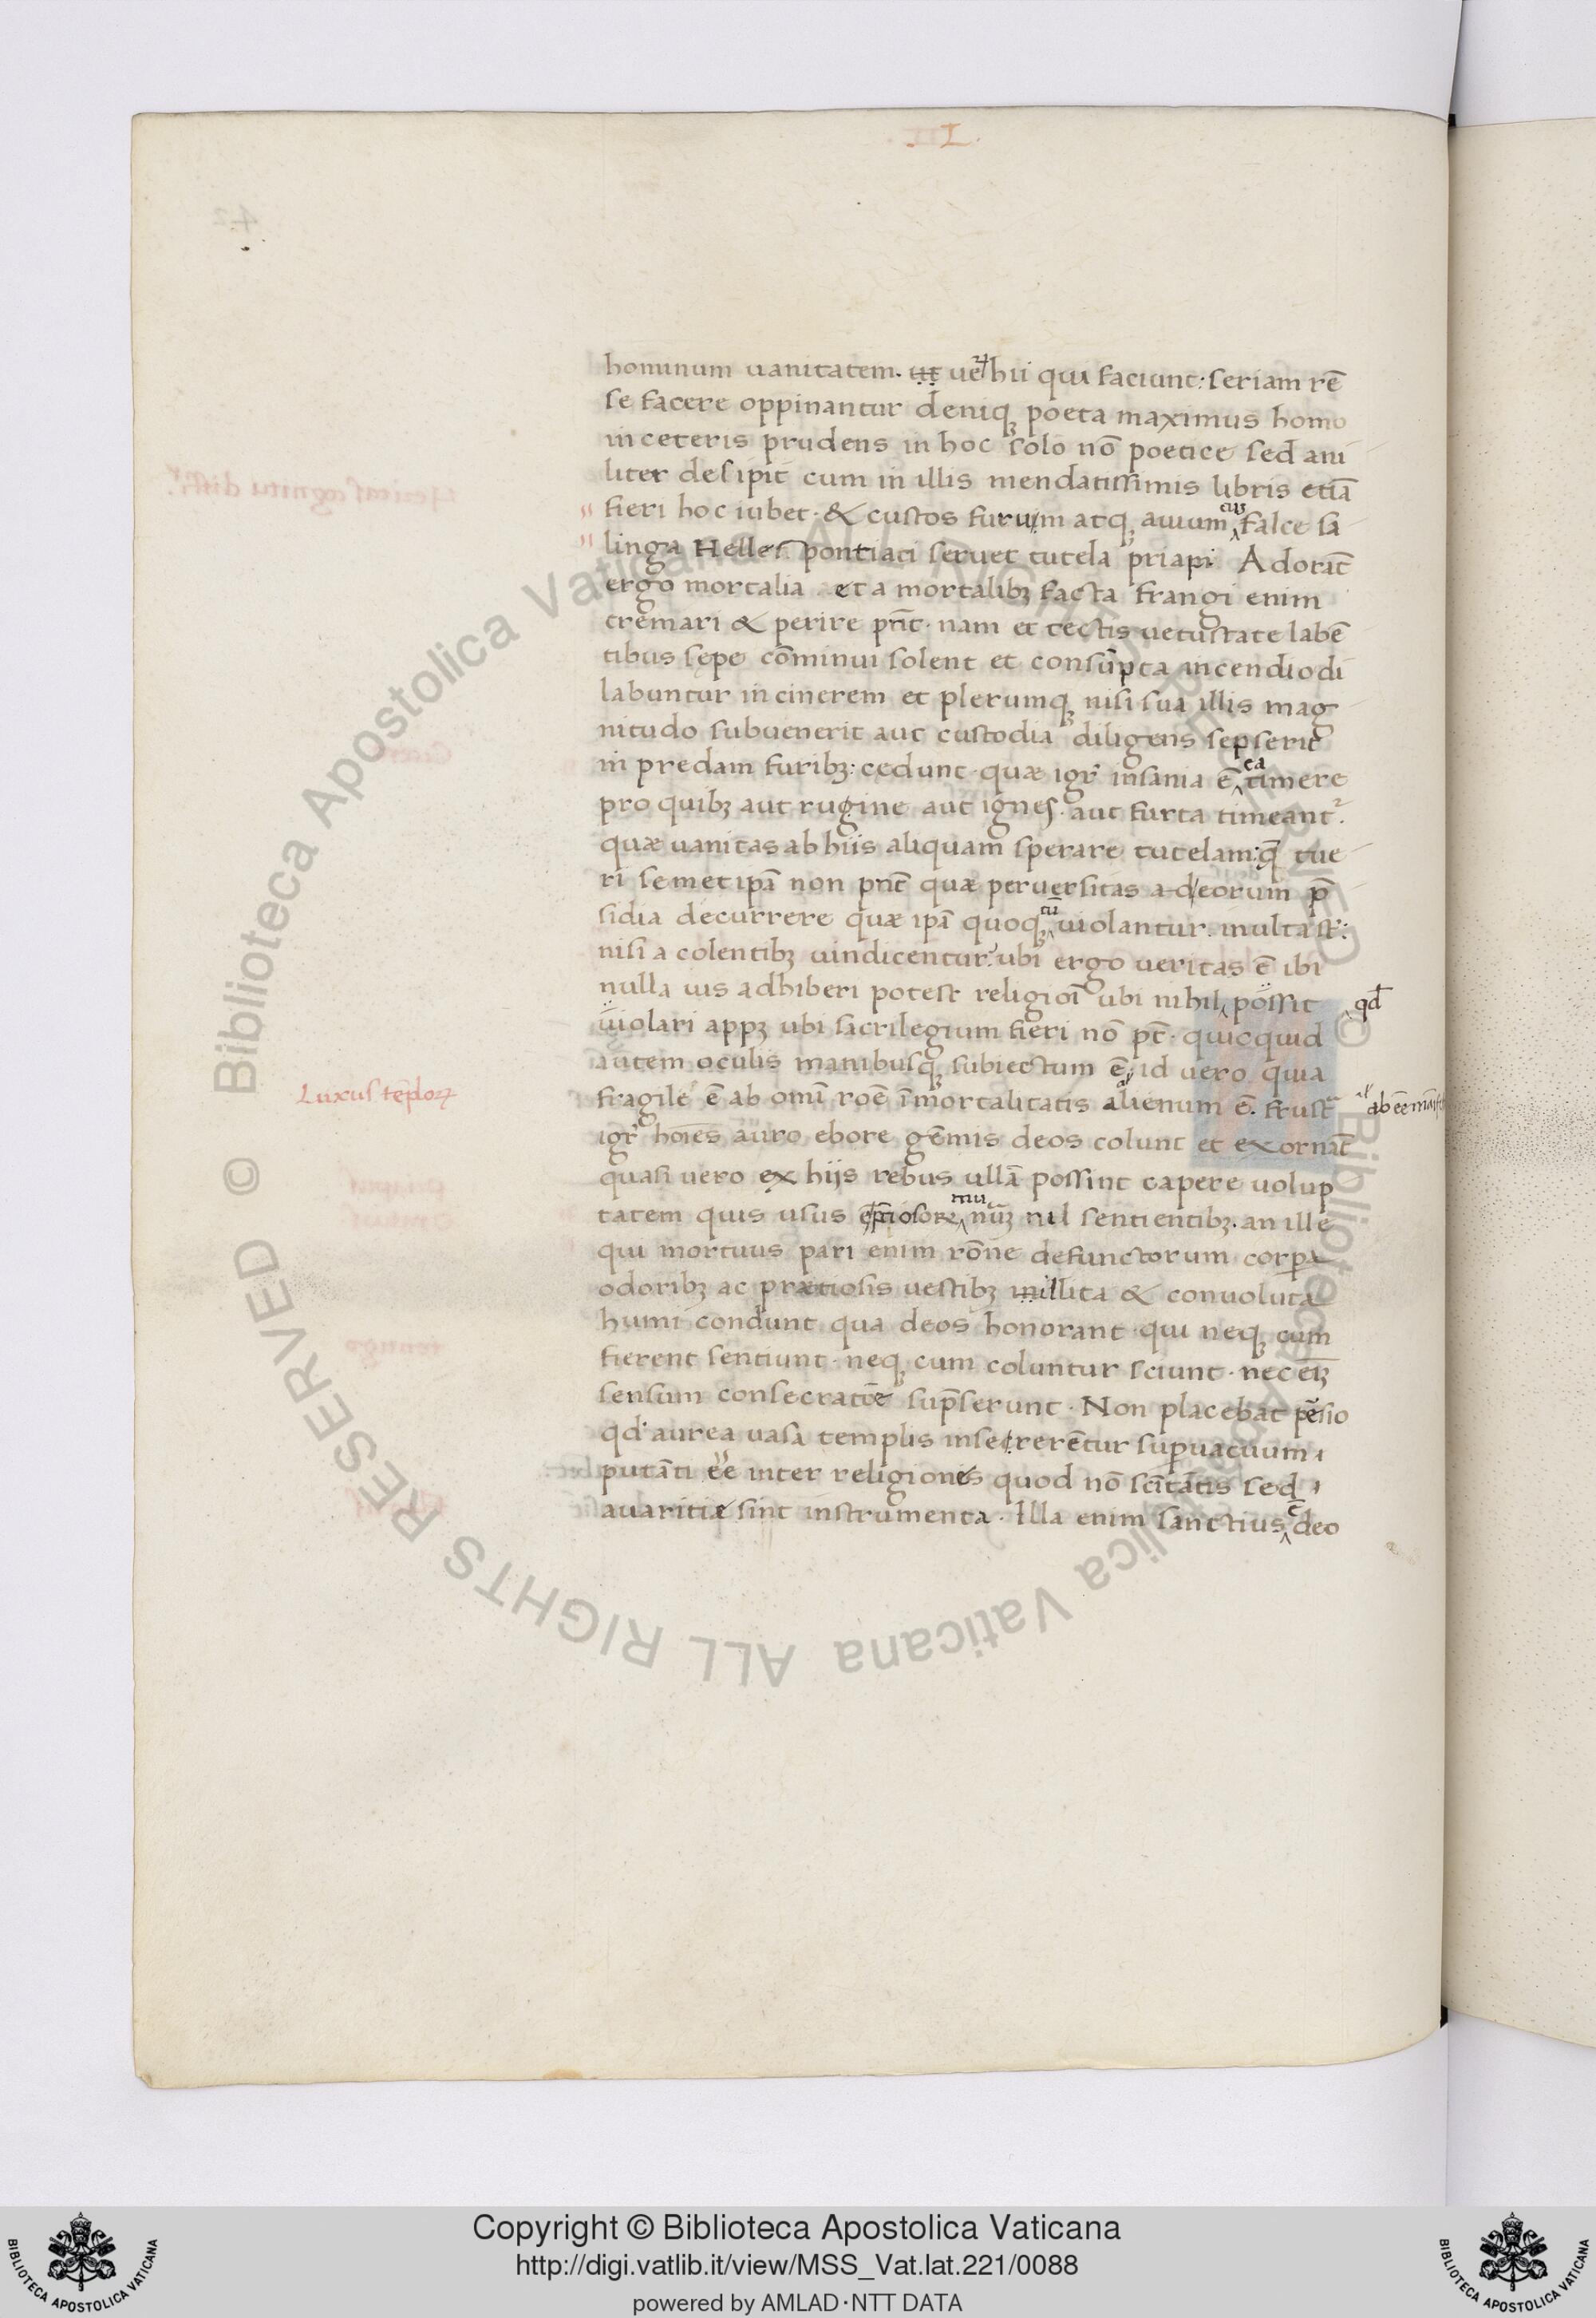 .II.
hominum uanitatem. ut ueꝝ hii qui faciunt: seriam rē
se facere oppinantur deniqꝫ poeta maximus homo
in ceteris prudens in hoc solo nō poetice sed ani
liter desipit cum in illis mendatissimis libris etiā
fieri hoc iubet. & custos furum atqꝫ auium cuꝫ falce sa
linga Hellespontiaci seruet tutela priapi. Adorāt
ergo mortalia et a mortalibꝫ facta frangi enim
cremari & perire pn̄t. nam et tectis uetustate labē
tibus sepe cōminui solent et consūpta incendio di
labuntur in cinerem et plerumqꝫ nisi sua illis mag
nitudo subuenerit aut custodia diligens sepserit
in predam furibꝫ: cedunt. quæ igr̄ insania ē ea timere
pro quibꝫ aut rugine aut ignes. aut furta timeant².
quæ uanitas ab hiis aliquam sperare tutelam: q̄ tue
ri semet ipā non pn̄t quæ peruersitas ad eorum p̄
sidia decurrere quæ ipā quoqꝫ cū uiolantur. multa st̄:
nisi a colentibꝫ uindicentur. ubi ergo ueritas ē ibi
nulla uis adhiberi potest religioī ubi nihil possit qđ
uiolari appꝫ ubi sacrilegium fieri nō pt̄. quicquid
autem oculis manibusqꝫ subiectum ē, id uero quia
fragile ē ab omī roē īmortalitatis alienum ē. frustᵃ
igr̄ hoīes auro ebore gēmis deos colunt et exornāt
quasi uero ex hijs rebus ullā possint capere uolup
tatem quis usus mu nūꝫ nil sentientibꝫ. an ille
qui mortuus pari enim rōne defunctorum corpa
odoribꝫ ac prætiosis uestibꝫ illita & conuoluta
humi condunt qua deos honorant. qui neqꝫ cum
fierent sentiunt. neqꝫ cum coluntur sciunt. nec eiꝫ
sensum consecratōe sūpserunt. Non placebat pēsio
qđ aurea uasa templis insecrerētur supuacuum
putāti ēe inter religiones quod nō scītatis sed
auaritiæ sint instrumenta. Illa enim sanctius ē deo
Luxus tēploꝝ
© Biblioteca Apostolica Vaticana ALL RIGHTS RESERVED
Copyright © Biblioteca Apostolica Vaticana
http://digi.vatlib.it/view/MSS_Vat.lat.221/0088
powered by AMLAD·NTT DATA
BIBLIOTECA APOSTOLICA VATICANA
BIBLIOTECA APOSTOLICA VATICANA